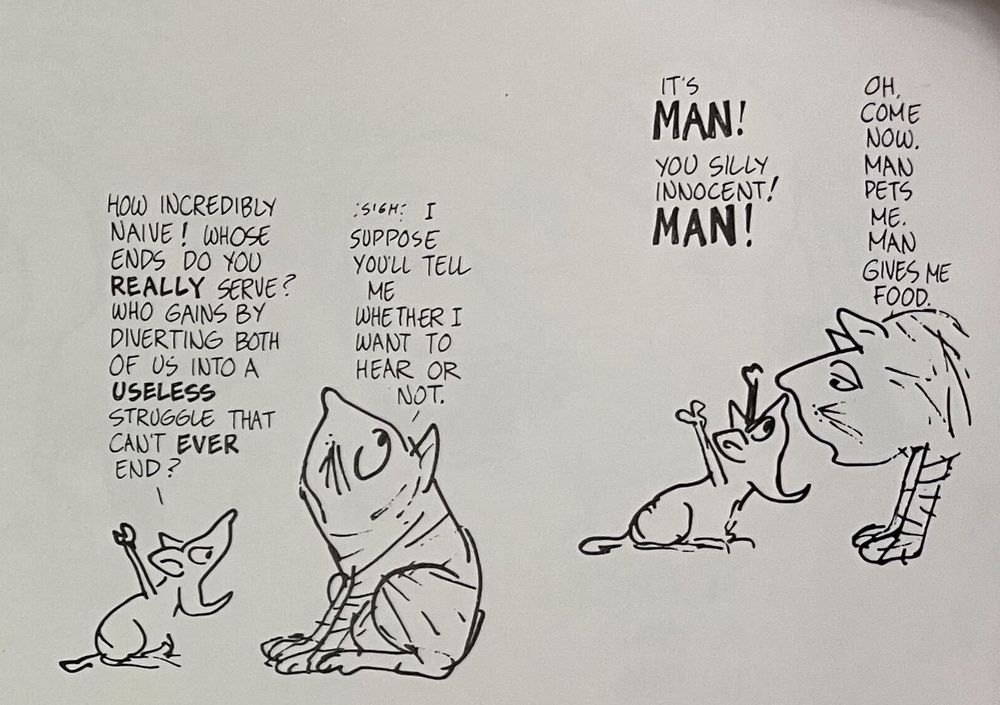 HOW INCREDIBLY
NAIVE! WHOSE
ENDS DO YOU
REALLY SERVE?
WHO GAINS BY
DIVERTING BOTH
OF US INTO A
USELESS
STRUGGLE THAT
CAN'T EVER
END?
:SIGH: I
SUPPOSE
YOU'LL TELL
ME
WHETHER I
WANT TO
HEAR OR
NOT.
IT'S
MAN!
YOU SILLY
INNOCENT!
MAN!
OH,
COME
NOW.
MAN
PETS
ME.
MAN
GIVES ME
FOOD.